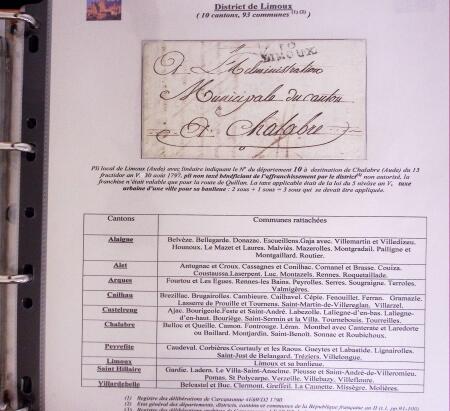 District de Limoux
( 10 cantons, 93 communes (1) (2)
10
LIMOUX
A L'Administration
Municipale du canton
A Chalabre
Pli local de Limoux (Aude) avec linéaire indiquant le N° du département 10 à destination de Chalabre (Aude) du 13
fructidor an V. 30 août 1797, pli non taxé bénéficiant de l'affranchissement par le district(3) non autorisé, la
franchise n'était valable que pour la route de Quillan. La taxe applicable était de la loi du 5 nivôse an V, taxe
urbaine d'une ville pour sa banlieue : 2 sous + 1 sous = 3 sous qui se devait être appliquée.
Cantons Communes rattachées
Alaigne Belvèze. Bellegarde. Donazac. Escueillens.Gaja avec. Villemartin et Villedizeu.
Hounoux. Le Mazet et Laures. Malviès. Mazerolles. Montgradail. Pailligne et
Montgaillard. Routier.
Alet Antugnac et Croux. Cassagnes et Conilhac. Cornanel et Brasse. Couiza.
Coustaussa.Laserpent. Luc. Montazels. Rennes. Roquetaillade.
Arques Fourtou et Les Egues. Rennes-les Bains. Peyrolles. Serres. Sougraigne. Terroles.
Valmigères.
Cailhau Brezillac. Brugairolles. Cambieure. Cailhavel. Cépie. Fenouillet. Ferran. Gramazie.
Lasserre de Prouille et Tournens. Saint-Martin-de-Villereglan. Villarzel.
Castelreng Ajac. Bourigeole.Feste et Saint-André. Labezolle. Laliegne-d'en-bas. Laliegne-
d'en-haut. Bouriège. Saint-Sernin et la Villa. Tournebouix. Tourreilles.
Chalabre Belloc et Queille. Camon. Fontrouge. Léran. Montbel avec Canterate et Laredorte
ou Baillard. Montjardin. Saint-Benoît. Sonnac et Roubichoux.
Peyrefite Caudeval. Corbières.Courtauly et les Raous. Gueytes et Labastide. Lignairolles.
Saint-Just de Belangard. Tréziers. Villelongue.
Limoux Limoux et sa banlieue.
Saint Hillaire Gardie. Ladern. Le Villa-Saint-Anselme. Pieusse et Saint-André-de-Villeromieu.
Pomas. St Polycarpe. Verzeille. Villebuzy. Villefloure.
Villardebelle Belcastel et Buc. Clermont. Greffeil. La Caunette. Missègre. Molières.
(1) Registre des délibérations de Carcassonne 4169/D2 1790
(2) Etat général des départements, districts, cantons et communes de la République française an II (t.1, pp.91-100)
(3) Registre des délibérations